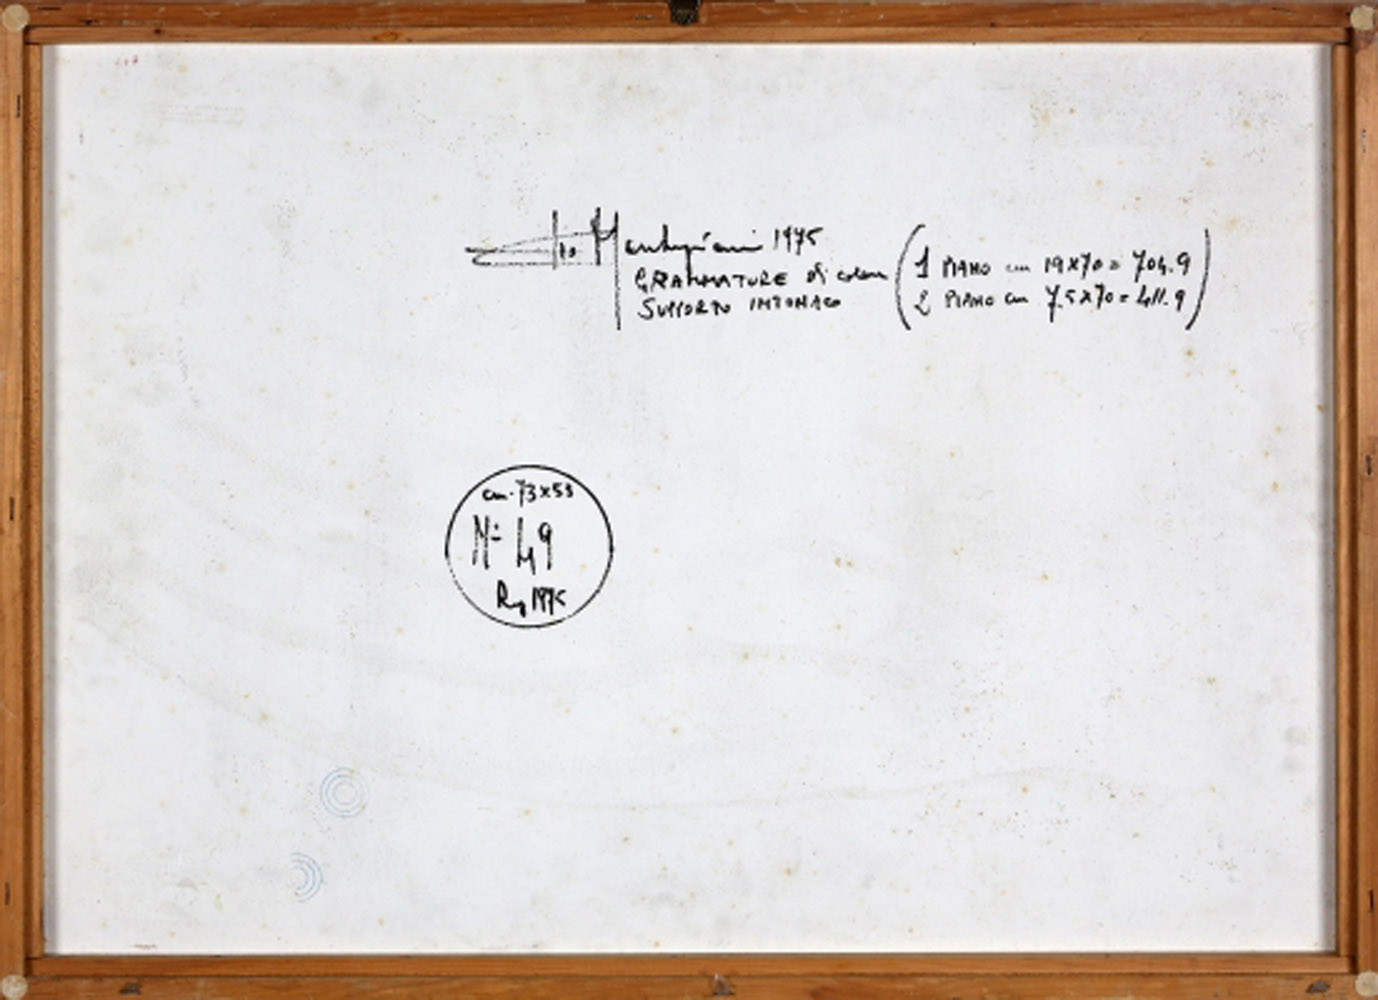 1975
GRAMMATURE di colore (1 PIANO cm 19x70 = 704.9
SUPPORTO INTONACO 2 PIANO cm 7.5x70 = 411.9)
cm. 73x53
N= 49
1975